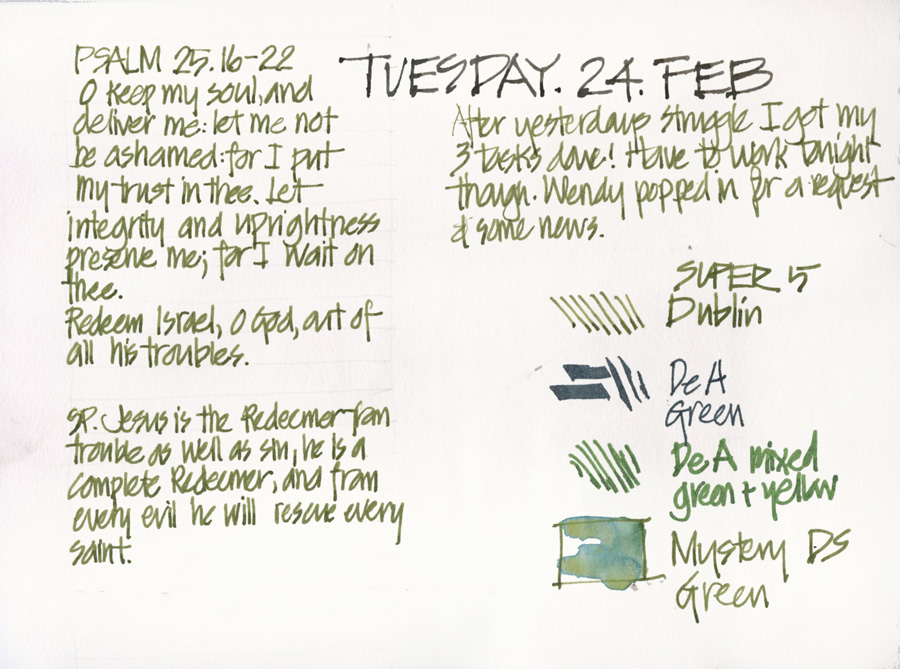 PSALM 25.16-22
O keep my soul, and
deliver me: let me not
be ashamed: for I put
my trust in thee. Let
integrity and uprightness
preserve me; for I wait on
thee.
Redeem Israel, O God, out of
all his troubles.
SP. Jesus is the Redeemer from
trouble as well as sin, he is a
complete Redeemer, and from
every evil he will rescue every
saint.
TUESDAY. 24. FEB
After yesterdays struggle I got my
3 tasks done! Have to work tonight
though. Wendy popped in for a request
& some news.
SUPER 5
Dublin
De A
Green
De A mixed
green + yellow
Mystery DS
Green